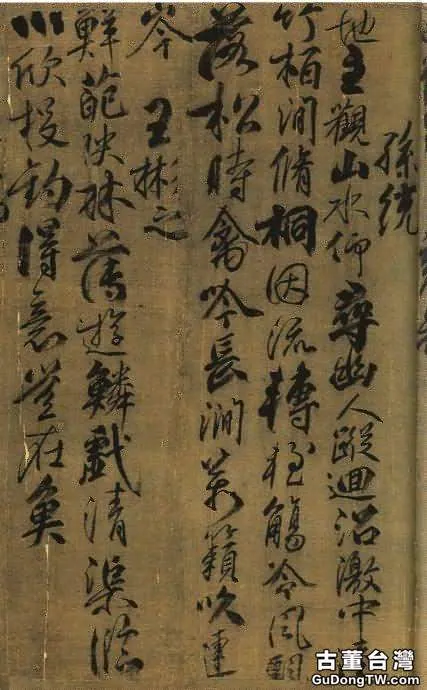 孫統
地主觀山水仰尋幽人蹤迴沼激中
竹柏間脩桐因流轉輕觴冷風飄
落松時禽吟長澗萬籟吹連
岑 王彬之
鮮葩映林薄遊鱗戲清渠臨
川欣投釣得意豈在魚
古董台灣
GuDongTW.com